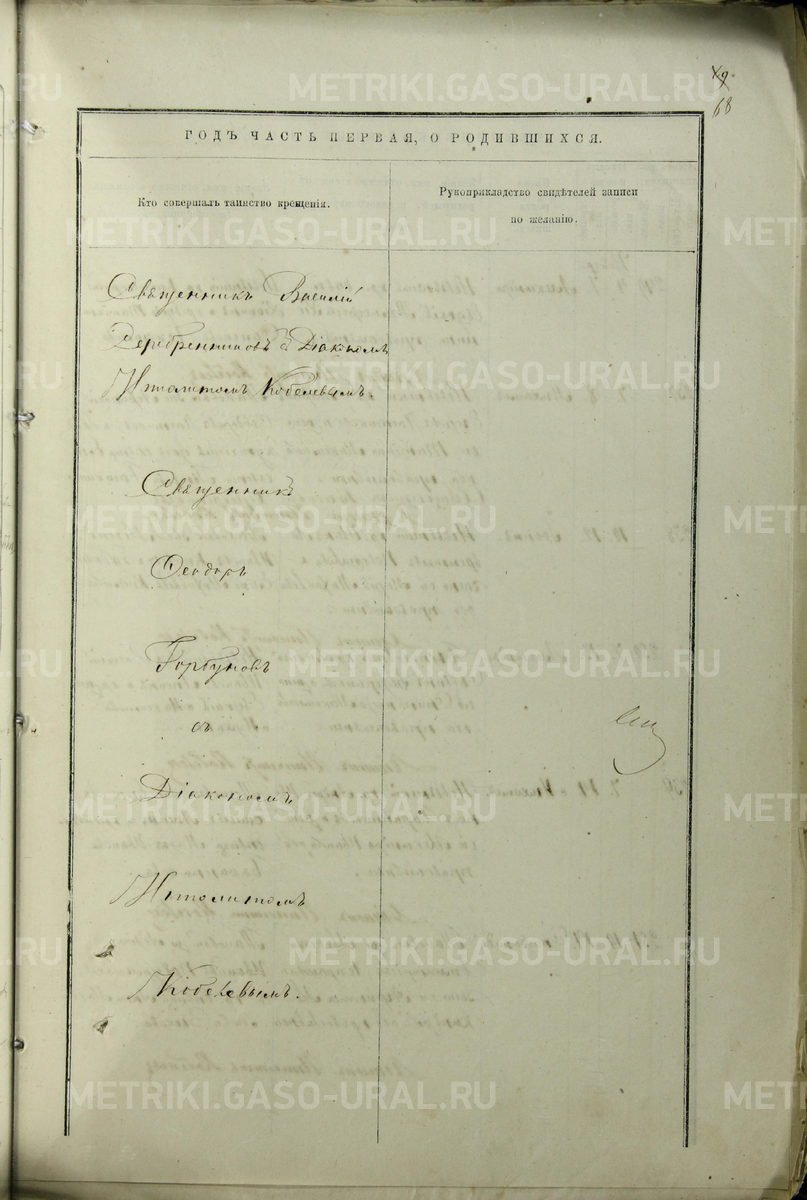 68
ГОДЪ ЧАСТЬ ПЕРВАЯ, О РОДИВШИХСЯ.
Кто совершалъ таинство крещенія.
Рукоприкладство свидѣтелей записи
по желанію.
Священникъ Василій
Деребренниковъ съ Діакономъ
Иполитомъ Кобелевымъ.
Священникъ
Феодоръ
Горбуновъ
съ
Діакономъ
Иполитомъ
Кобелевымъ.
METRIKI.GASO-URAL.RU